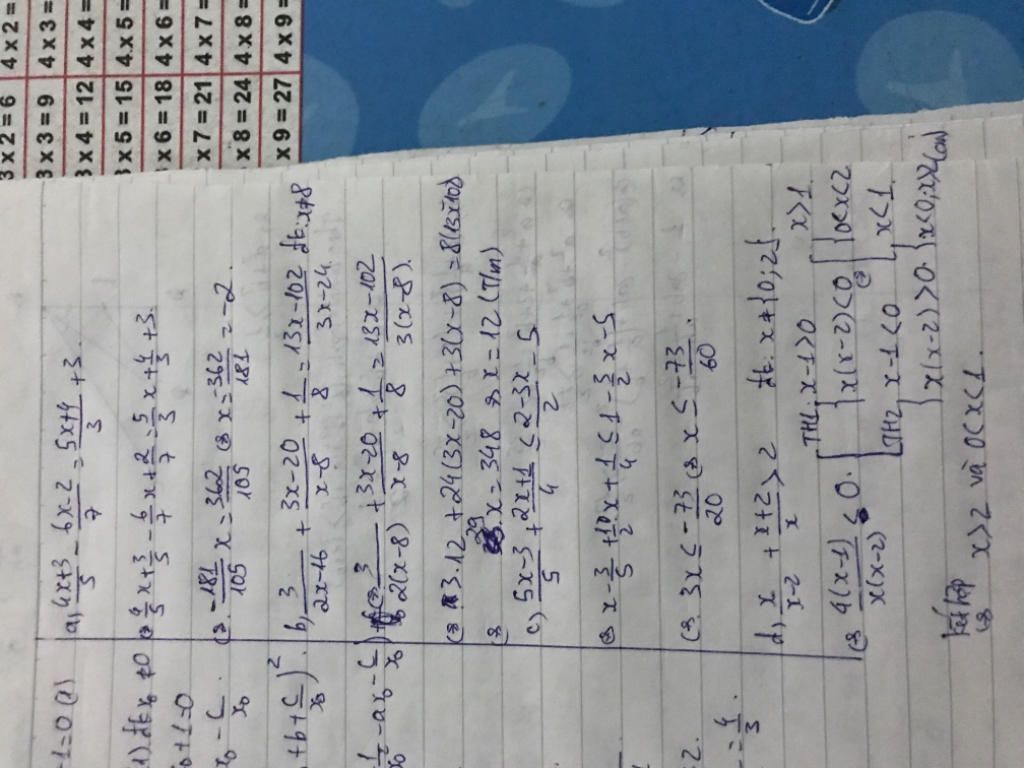 3 x 2 = 6 4 x 2 =
3 x 3 = 9 4 x 3 =
3 x 4 = 12 4 x 4 =
3 x 5 = 15 4 x 5 =
x 6 = 18 4 x 6 =
x 7 = 21 4 x 7 =
x 8 = 24 4 x 8 =
x 9 = 27 4 x 9 =
a, (4x+3)/5 - (6x-2)/7 = (5x+4)/3 + 3
⇔ 4/5 x + 3/5 - 6/7 x + 2/7 = 5/3 x + 4/3 + 3.
⇔ -181/105 x = 362/105 ⇔ x = 362/181 = -2.
b, 3/(2x-16) + (3x-20)/(x-8) + 1/8 = (13x-102)/(3x-24) đk: x≠8
3/(2(x-8)) + (3x-20)/(x-8) + 1/8 = (13x-102)/(3(x-8)).
⇔ 3.12 + 24(3x-20) + 3(x-8) = 8(13x-102)
⇔ 29x = 348 ⇔ x = 12 (T/m)
c) (5x-3)/5 + (2x+1)/4 ≤ (2-3x)/2 - 5
⇔ x - 3/5 + 1/2 x + 1/4 ≤ 1 - 3/2 x - 5
⇔ 3x ≤ -73/20 ⇔ x ≤ -73/60.
d, x/(x-2) + (x+2)/x > 2 đk: x ≠ {0; 2}.
⇔ 4(x-1)/(x(x-2)) < 0.
TH1: x-1>0 x>1
x(x-2)<0 ⇔ 0<x<2
TH2 x-1<0 x<1
x(x-2)>0 x<0; x>2
Kết hợp
⇔ x>2 và 0<x<1.
-1=0 (1)
1) đk x₀ ≠ 0
+1=0
x₀ - c/x₀.
+b+c/x₀)².
- ax₀ - c/x₀)
= 4/3